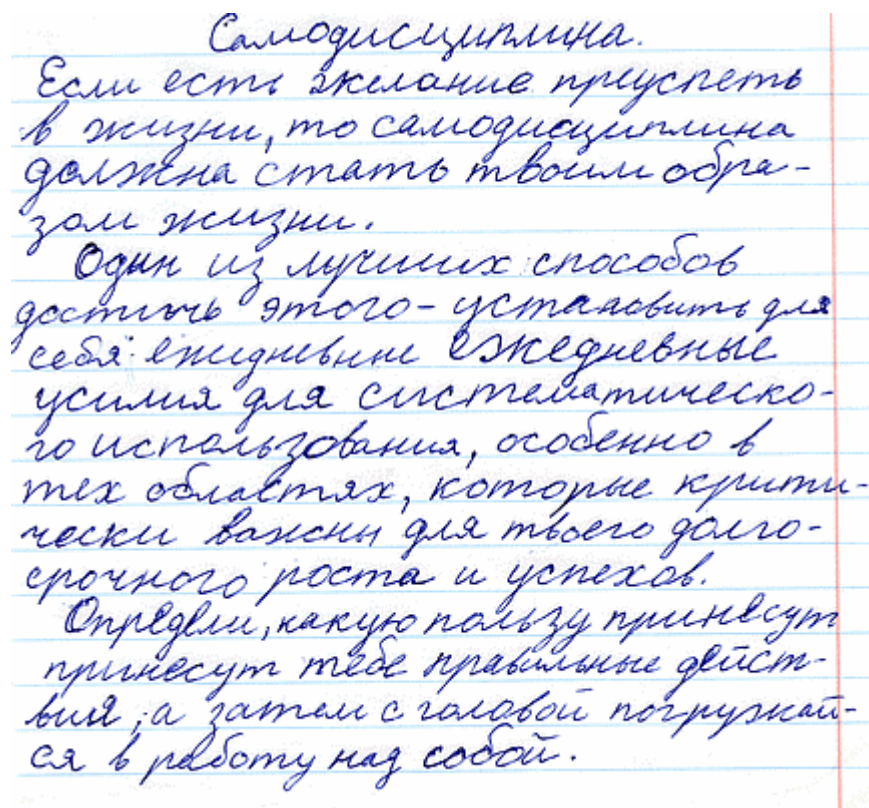 Самодисциплина.
Если есть желание преуспеть
в жизни, то самодисциплина
должна стать твоим обра-
зом жизни.
Один из лучших способов
достичь этого - установить для
себя ежидневные ежедневные
усилия для систематическо-
го использования, особенно в
тех областях, которые крити-
чески важны для твоего долго-
срочного роста и успехов.
Определи, какую пользу принесут
принесут тебе правильные дейст-
вия, а затем с головой погружай-
ся в работу над собой.